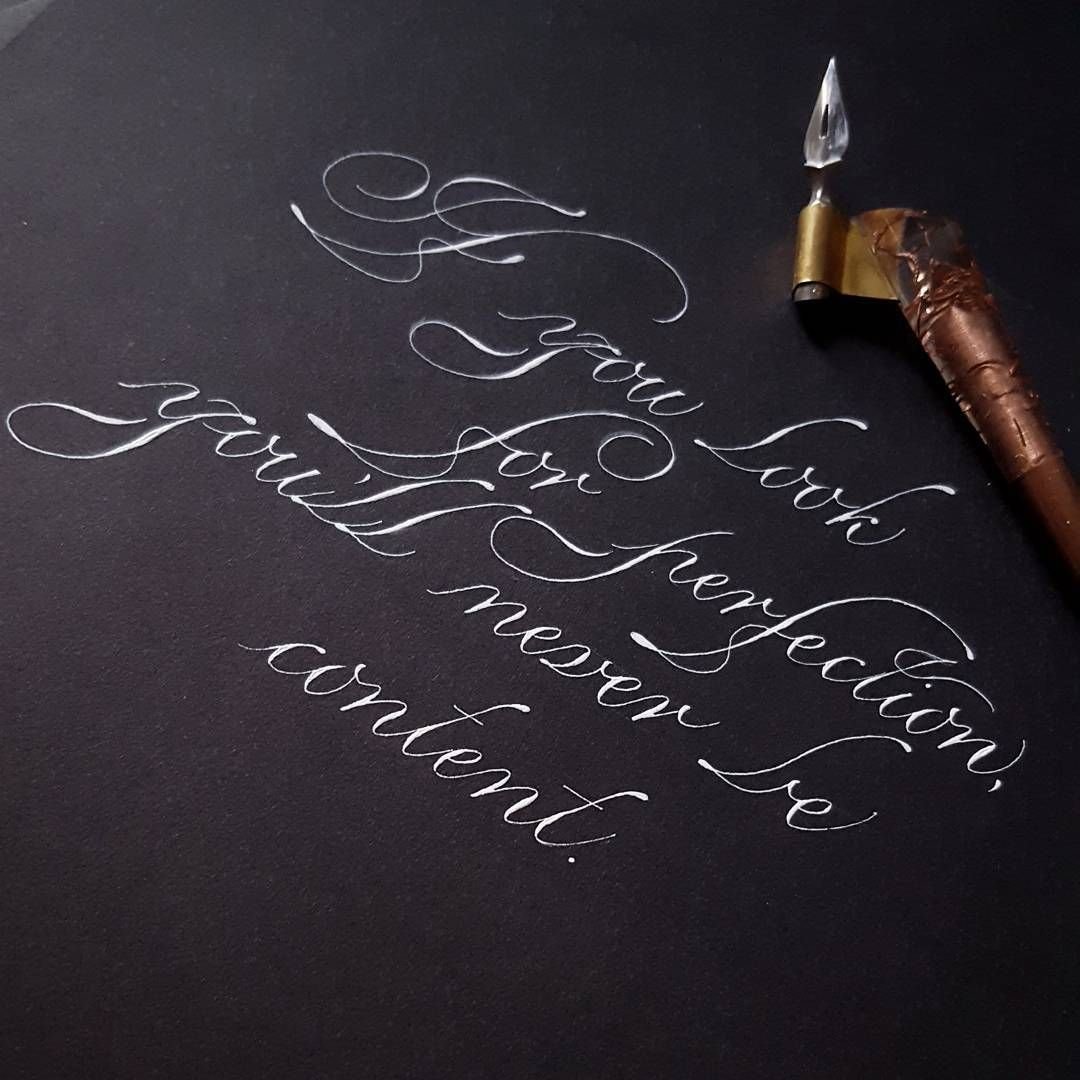 If
you look
for perfection,
you'll never be
content.